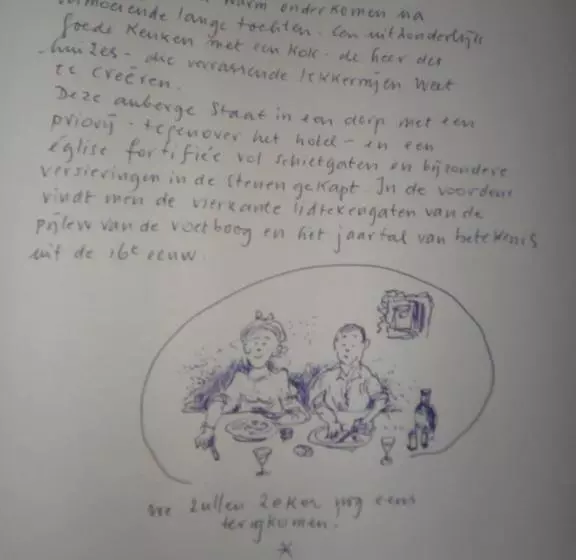 vermoeiende lange tochten. Een uitzonderlijk
goede keuken met een kok - de heer des
huizes - die verrassende lekkernijen weet
te creëren.
Deze auberge staat in een dorp met een
priorij - tegenover het hotel - en een
église fortifiée vol schietgaten en bijzondere
versieringen in de stenen gekapt. In de voordeur
vindt men de vierkante lidtekengaten van de
pijlen van de voetboog en het jaartal van betekenis
uit de 16e eeuw.
We zullen zeker nog eens
terugkomen.
*